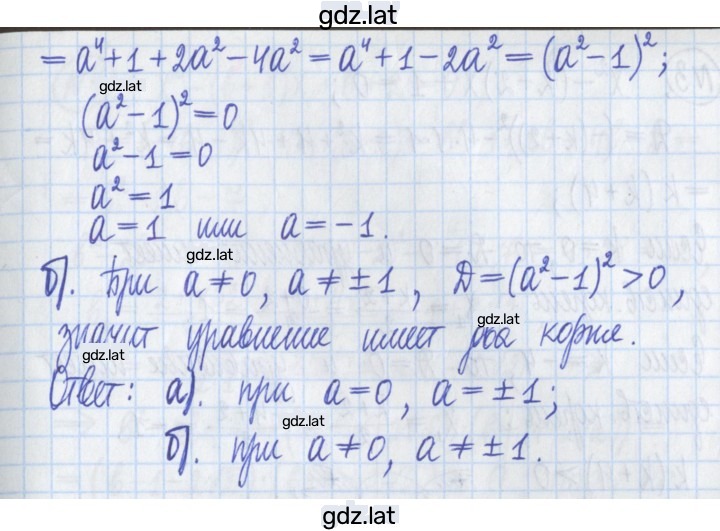 gdz.lat
= a⁴ + 1 + 2a² − 4a² = a⁴ + 1 − 2a² = (a² − 1)²;
gdz.lat
(a² − 1)² = 0
a² − 1 = 0
a² = 1
a = 1 или a = −1.
gdz.lat
б). При a ≠ 0, a ≠ ±1, D = (a² − 1)² > 0,
gdz.lat
значит уравнение имеет два корня.
gdz.lat
Ответ: а). при a = 0, a = ±1;
gdz.lat
б). при a ≠ 0, a ≠ ±1.
gdz.lat